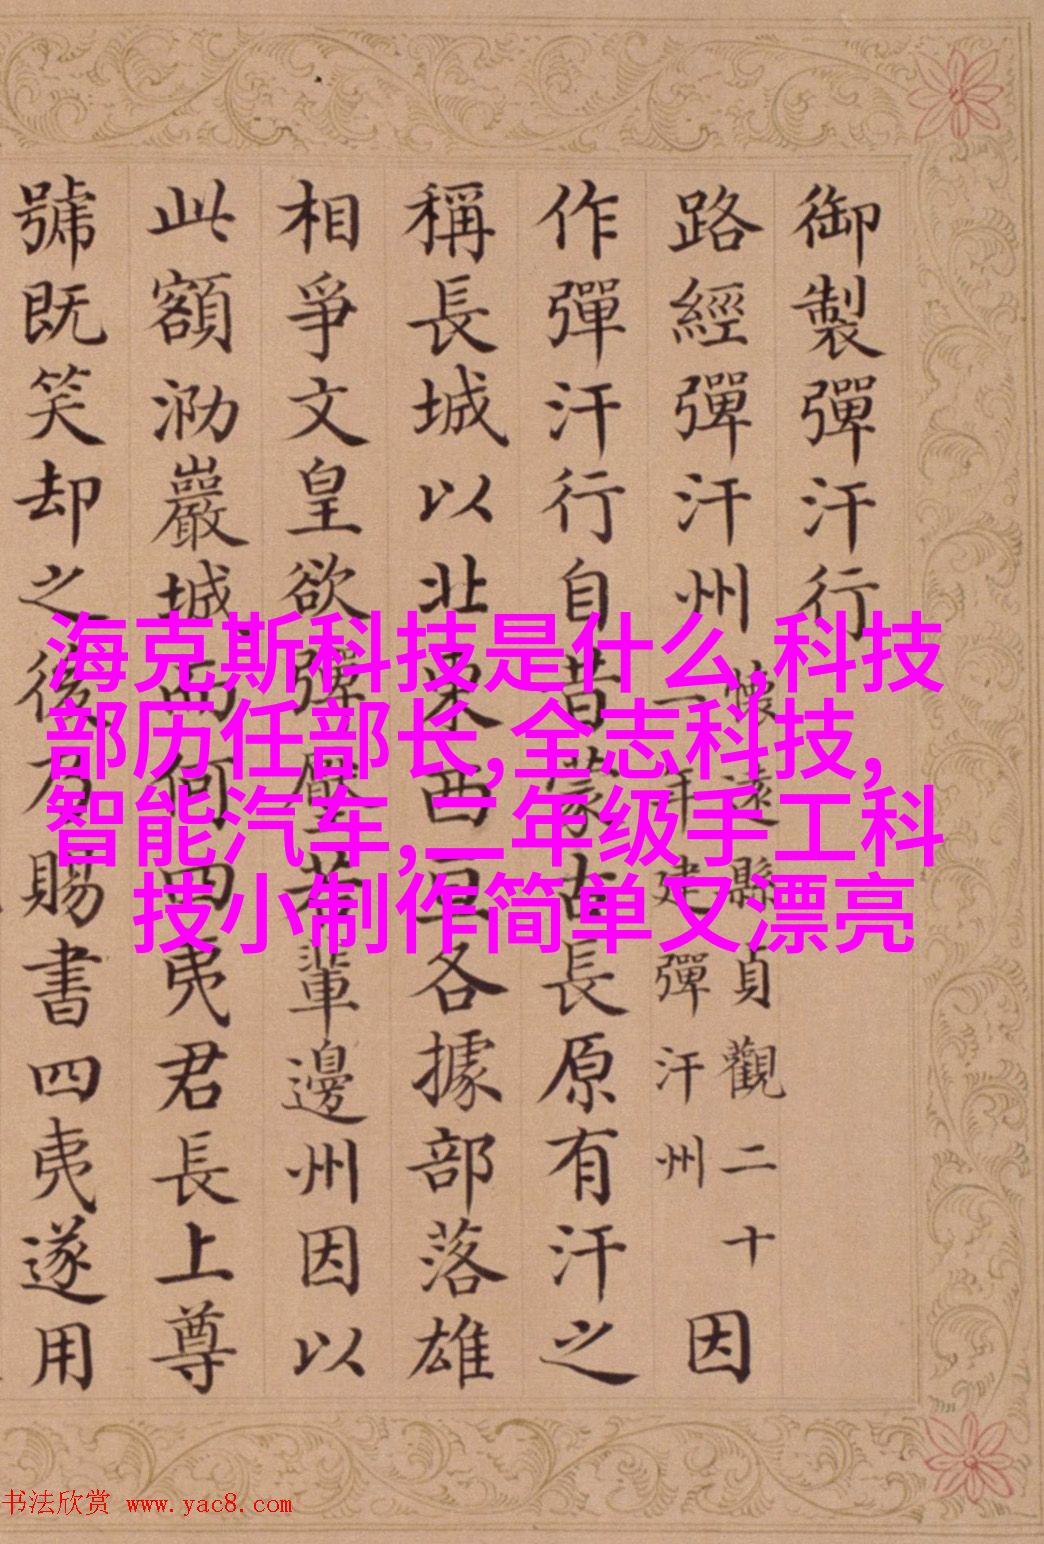 御製彈汗行
路經彈汗州
懷遠縣貞觀二十
一年建彈汗州
因
作彈汗行自昔蒙古長原有汗之
稱長城以北東西亘各據部落雄
相爭文皇欲彈壓若輩邊州因以
此額泐巖城而何四夷君長上尊
號既笑却之後乃賜書四夷遂用
海克斯科技是什么,科技
部历任部长,全志科技,
智能汽车,二年级手工科
技小制作简单又漂亮
书法欣赏 www.yac8.com